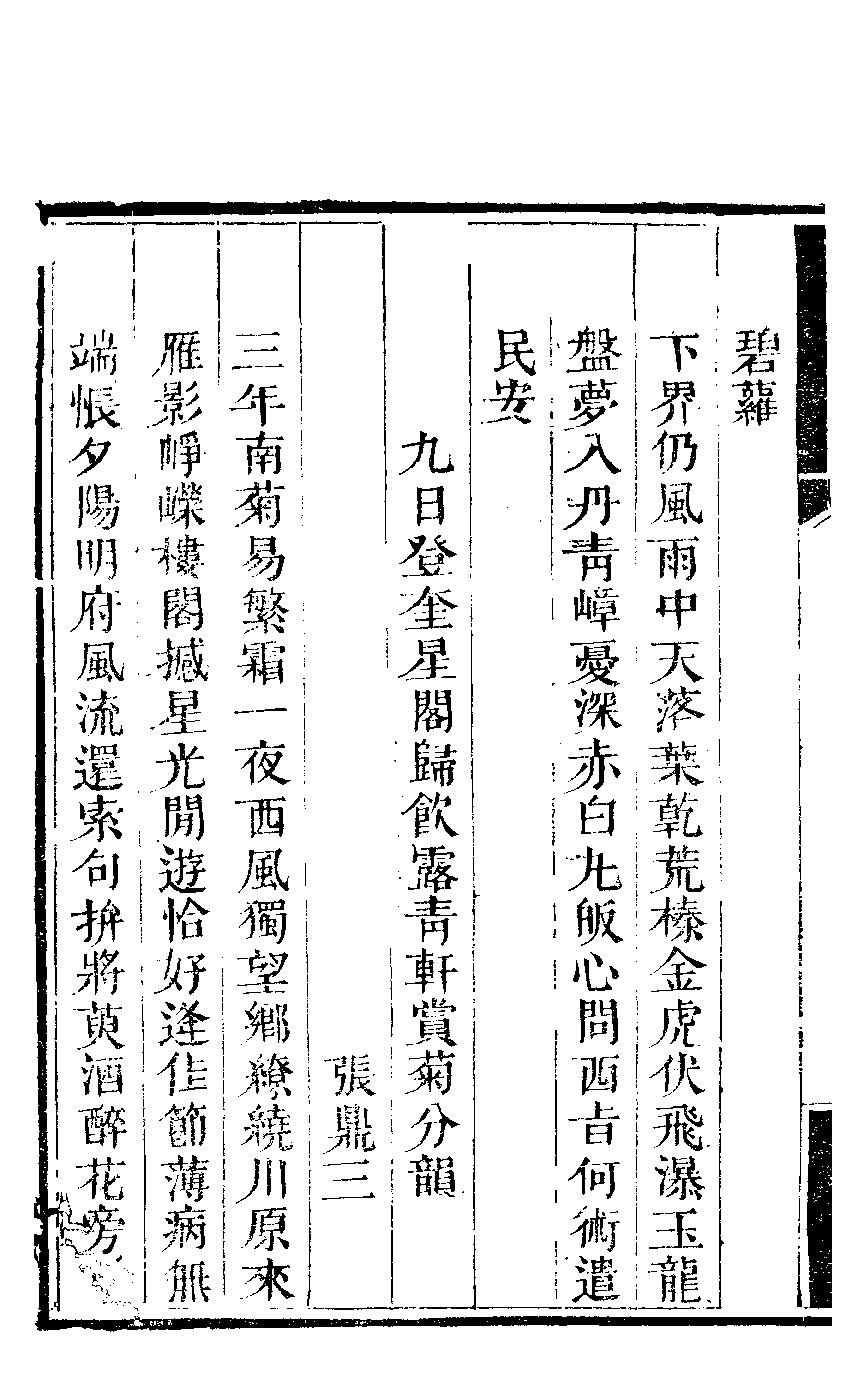 碧蘿
下界仍風雨中天落葉乾荒榛金虎伏飛瀑玉龍
盤夢入丹靑嶂憂深赤白丸皈心問西旹何術遣
民安
九日登奎星閣歸飲露靑軒賞菊分韻
張鼎三
三年南菊易繁霜一夜西風獨望鄉繚繞川原來
雁影崢嶸樓閣撼星光閒遊恰好逢佳節薄病無
端悵夕陽明府風流還索句拚將萸酒醉花旁